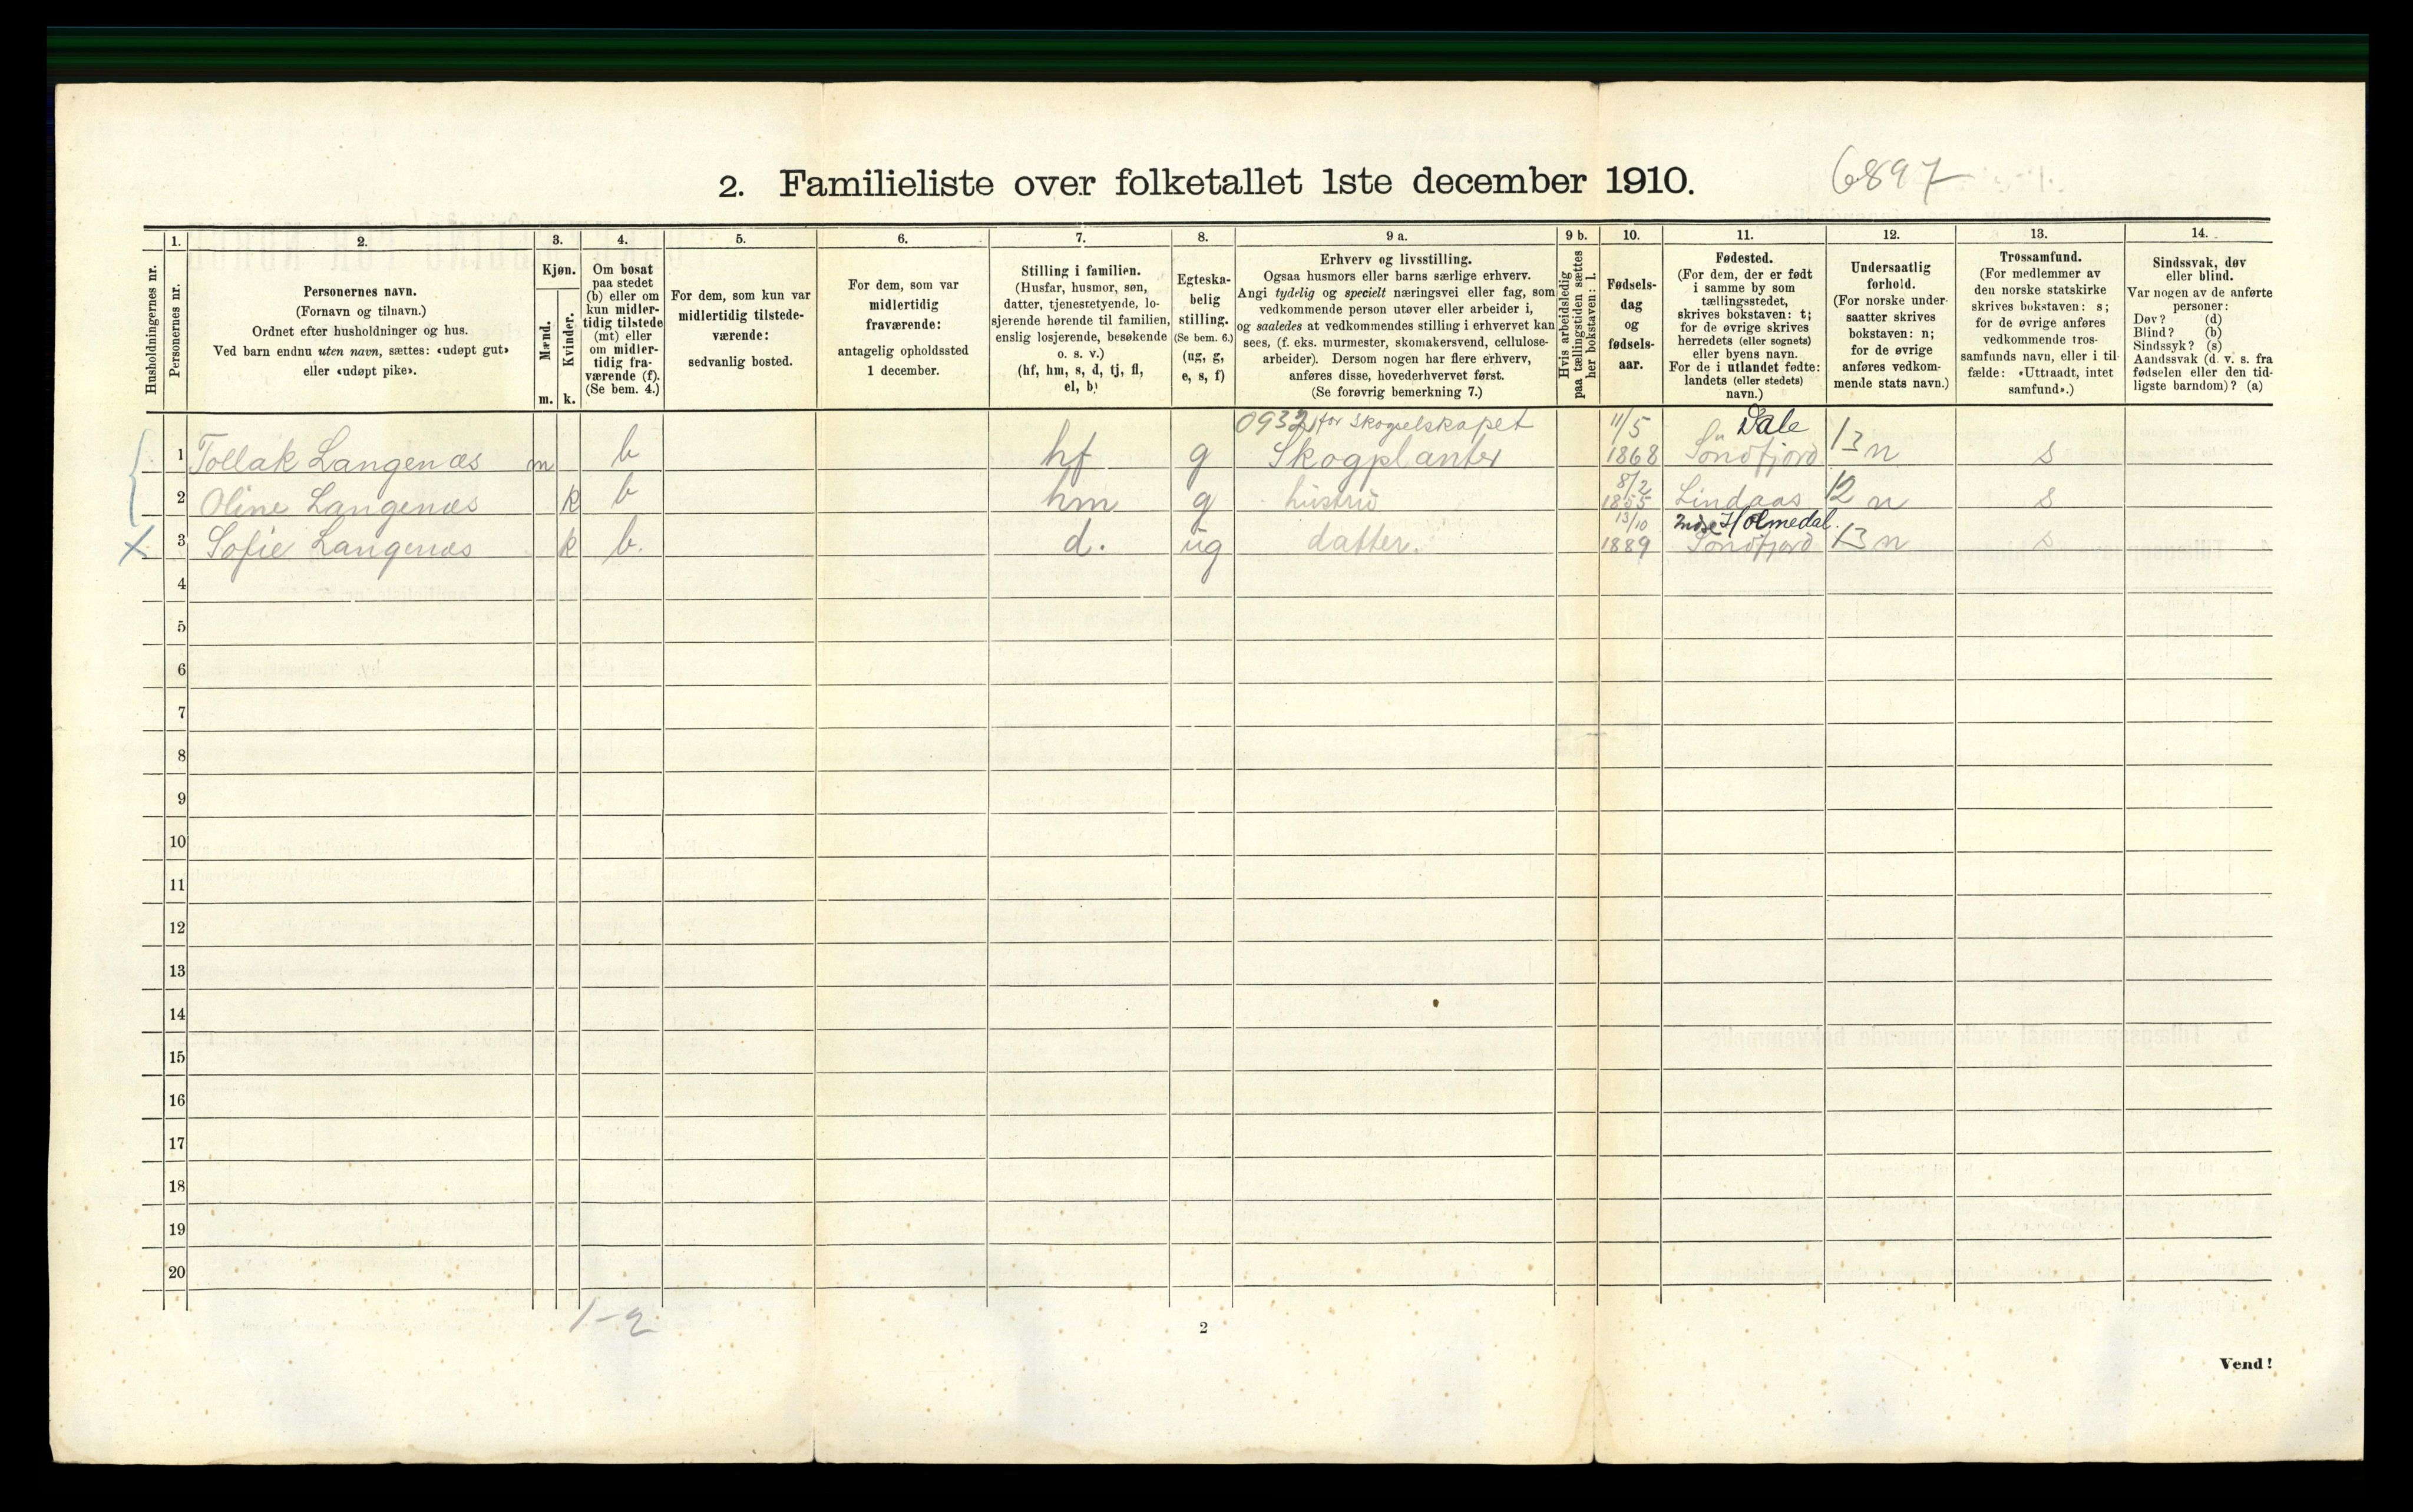 2. Familieliste over folketallet 1ste december 1910.
6897
Husholdningernes nr.
1.
Personernes nr.
2.
Personernes navn.
(Fornavn og tilnavn.)
Ordnet efter husholdninger og hus.
Ved barn endnu uten navn, sættes: «udøpt gut»
eller «udøpt pike».
3.
Kjøn.
Mænd.
Kvinder.
m. k.
4.
Om bosat
paa stedet
(b) eller om
kun midler-
tidig tilstede
(mt) eller
om midler-
tidig fra-
værende (f).
(Se bem. 4.)
5.
For dem, som kun var
midlertidig tilstede-
værende:
sedvanlig bosted.
6.
For dem, som var
midlertidig
fraværende:
antagelig opholdssted
1 december.
7.
Stilling i familien.
(Husfar, husmor, søn,
datter, tjenestetyende, lo-
sjerende hørende til familien,
enslig losjerende, besøkende
o. s. v.)
(hf, hm, s, d, tj, fl,
el, b)
8.
Egteska-
belig
stilling.
(Se bem. 6.)
(ug, g,
e, s, f)
9 a.
Erhverv og livsstilling.
Ogsaa husmors eller barns særlige erhverv.
Angi tydelig og specielt næringsvei eller fag, som
vedkommende person utøver eller arbeider i,
og saaledes at vedkommendes stilling i erhvervet kan
sees, (f. eks. murmester, skomakersvend, cellulose-
arbeider). Dersom nogen har flere erhverv,
anføres disse, hovederhvervet først.
(Se forøvrig bemerkning 7.)
9 b.
Hvis arbeidsledig
paa tællingstiden sættes
her bokstaven: l.
10.
Fødsels-
dag
og
fødsels-
aar.
11.
Fødested.
(For dem, der er født
i samme by som
tællingsstedet,
skrives bokstaven: t;
for de øvrige skrives
herredets (eller sognets)
eller byens navn.
For de i utlandet fødte:
landets (eller stedets)
navn.)
12.
Undersaatlig
forhold.
(For norske under-
saatter skrives
bokstaven: n;
for de øvrige
anføres vedkom-
mende stats navn.)
13.
Trossamfund.
(For medlemmer av
den norske statskirke
skrives bokstaven: s;
for de øvrige anføres
vedkommende tros-
samfunds navn, eller i til-
fælde: «Uttraadt, intet
samfund».)
14.
Sindssvak, døv
eller blind.
Var nogen av de anførte
personer:
Døv? (d)
Blind? (b)
Sindssyk? (s)
Aandssvak (d. v. s. fra
fødselen eller den tid-
ligste barndom)? (a)
0932 for Skogselskapet 11/5 Dale
1 Tollak Langenæs m b hf g Skogplanter 1868 Söndfjord 13 n s
8/2
2 Oline Langenæs k b hm g hustru 1855 Lindaas 12 n s
13/10 Indre Holmedal.
X 3 Sofie Langenæs k b. d. ug datter. 1889 Söndfjord 13 n s
4
5
6
7
8
9
10
11
12
13
14
15
16
17
18
19
20
1-2
2
Vend!